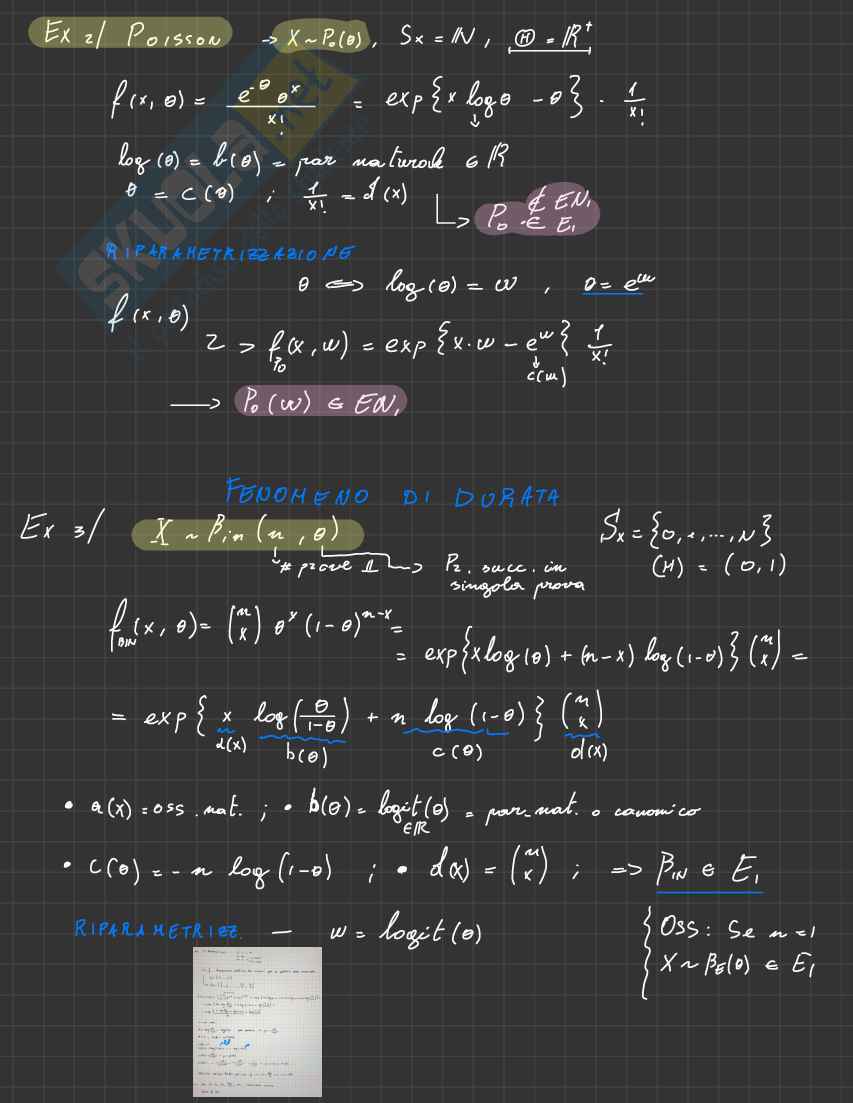 Ex 2/ POISSON → X ~ Po(θ), Sx = ℕ, Ⓗ = ℝ⁺
f(x, θ) = e^{-θ} θ^x / x! = exp{x log θ - θ} · 1/x!
log(θ) = b(θ) = par naturale ∈ ℝ
θ = c(θ) ; 1/x! = d(x)
Po ∉ EN₁
∈ E₁
RIPARAMETRIZZAZIONE
θ ⟺ log(θ) = w , θ = e^w
f(x, θ)
f_Po(x, w) = exp{x·w - e^w} 1/x!
c(w)
→ Po(w) ∈ EN₁
FENOMENO DI DURATA
Ex 3/ X ~ Bin(n, θ) Sx = {0, 1, ..., N}
# prove ⫫ → Pr. succ. in singola prova
(H) = (0, 1)
f_BIN(x, θ) = (n x) θ^x (1-θ)^{n-x} =
= exp{x log(θ) + (n-x) log(1-θ)} (n x) =
= exp{ x log(θ/1-θ) + n log(1-θ)} (n x)
d(x) b(θ) c(θ) d(x)
• a(x) = oss. nat. ; • b(θ) = logit(θ) = par. nat. o canonico
∈ℝ
• c(θ) = - n log(1-θ) ; • d(x) = (n x) ; => BIN ∈ E₁
RIPARAMETRIZZ. — w = logit(θ)
OSS: Se n = 1
X ~ BE(θ) ∈ E₁
SKUOLA.net